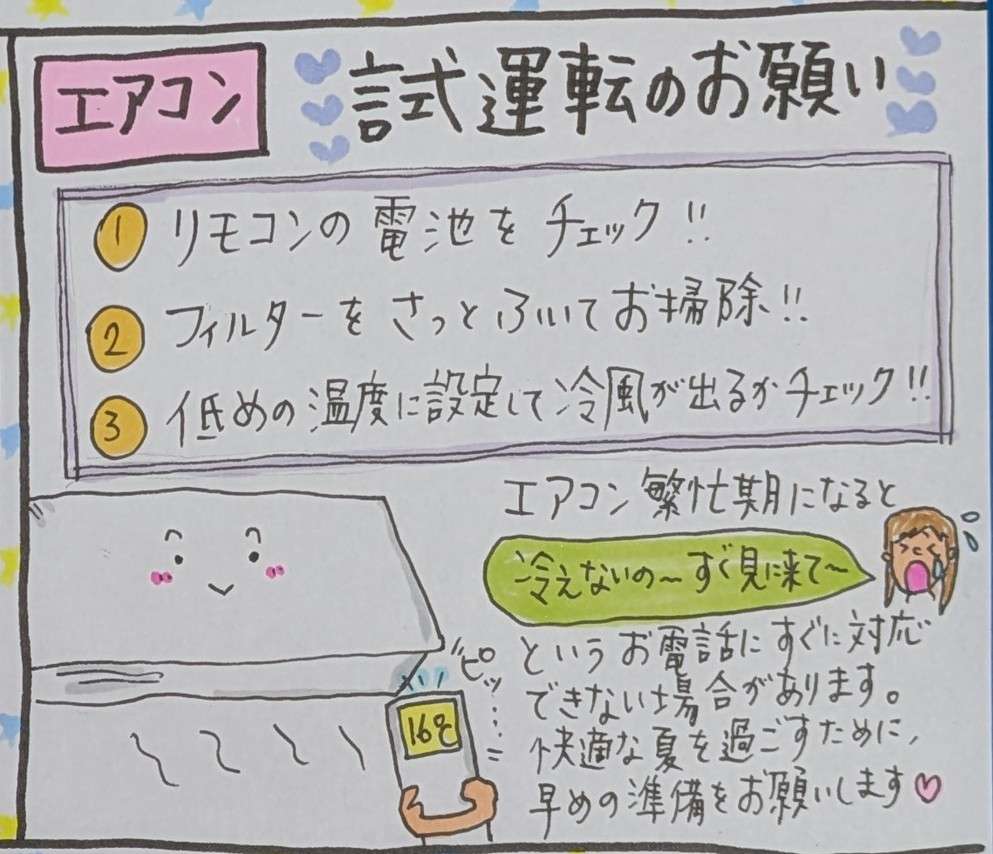 エアコン
試運転のお願い
① リモコンの電池をチェック!!
② フィルターをさっとふいてお掃除!!
③ 低めの温度に設定して冷風が出るかチェック!!
エアコン繁忙期になると
冷えないの〜すぐ見に来て〜
というお電話にすぐに対応
できない場合があります。
快適な夏を過ごすために、
早めの準備をお願いします♡
ピッ....
16℃